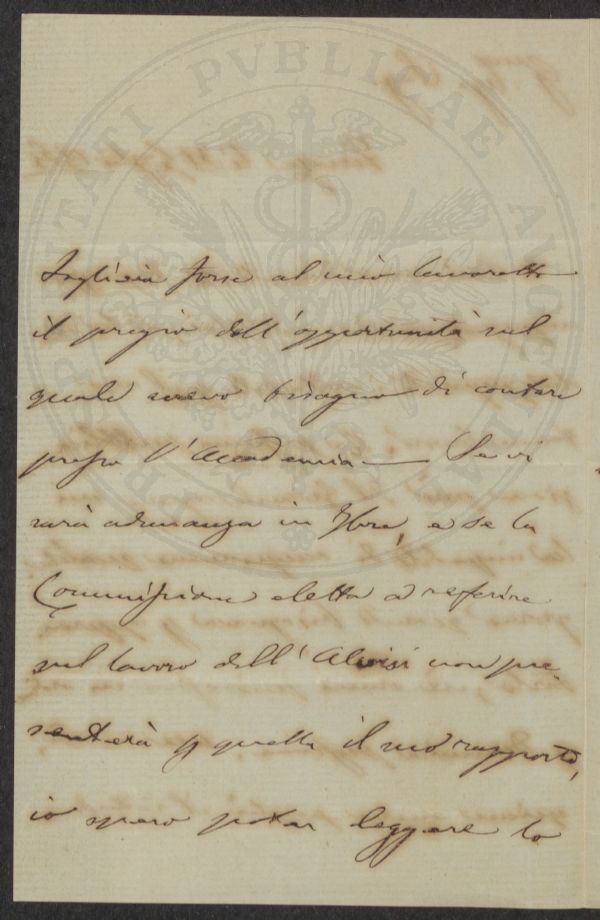 PROSPERITATI PVBLICAE AVGENDAE
Toglieria forse al mio lavoretto
il pregio dell'opportunità sul
quale avevo bisogno di contare
presso l'Accademia — Se vi
sarà adunanza in 9bre, e se la
Commissione eletta a referire
sul lavoro dell'Aloisi non pre-
senterà p quella il suo rapporto,
io spero poter leggere lo